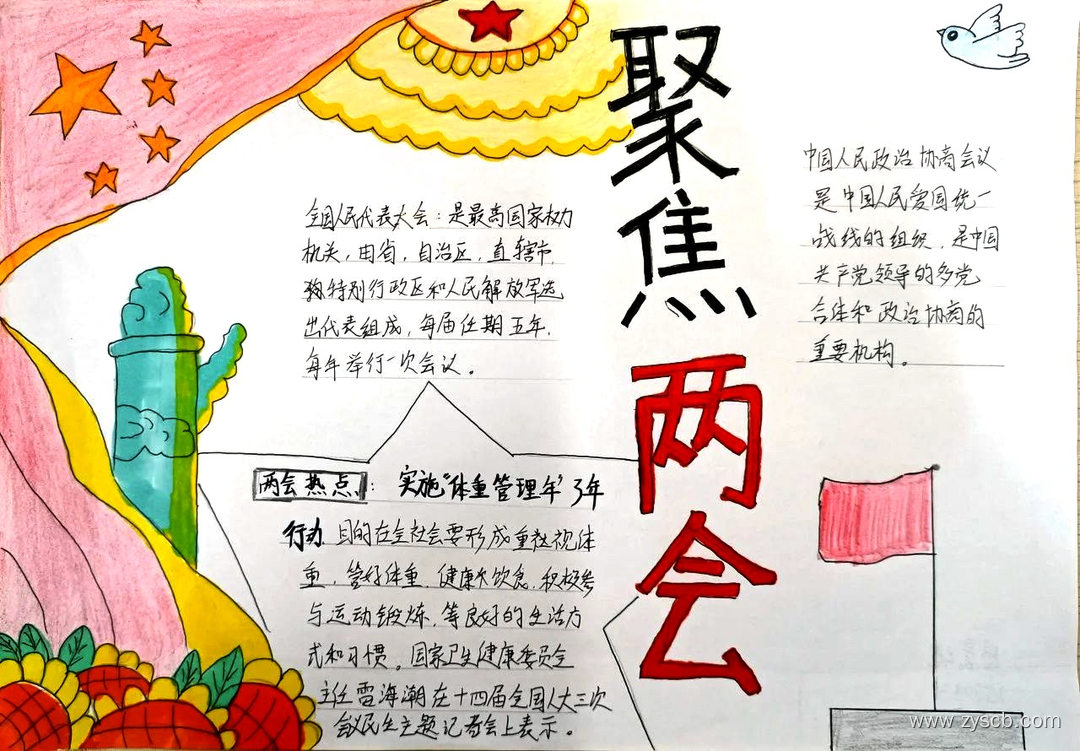 聚焦两会
全国人民代表大会：是最高国家权力
机关，由省，自治区，直辖市，
特别行政区和人民解放军选
出代表组成，每届任期五年，
每年举行一次会议。
中国人民政治协商会议
是中国人民爱国统一
战线的组织，是中国
共产党领导的多党
合作和政治协商的
重要机构。
两会热点：实施“体重管理年”3年
行动 目的在全社会要形成重社视体
重，管好体重，健康饮食，积极参
与运动锻炼，等良好的生活方
式和习惯。国家卫生健康委员会
主任雷海潮在十四届全国人大三次
会议民生主题记者会上表示。
www.zyscb.com